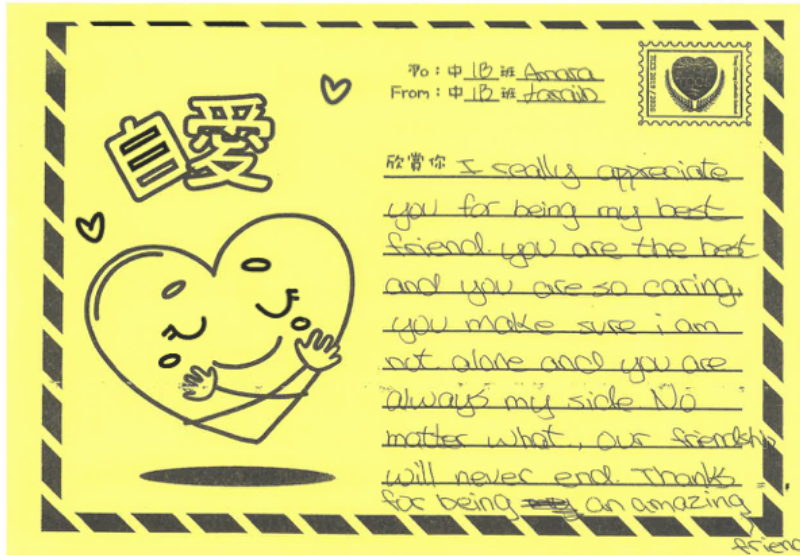 自愛
To：中 1B 班 Amara
From：中 1B 班
欣賞你 I really appreciate
you for being my best
friend. you are the best
and you are so caring.
you make sure i am
not alone and you are
always my side. No
matter what, our friendship
will never end. Thanks
for being an amazing
friend
TCCS 2019 / 2020